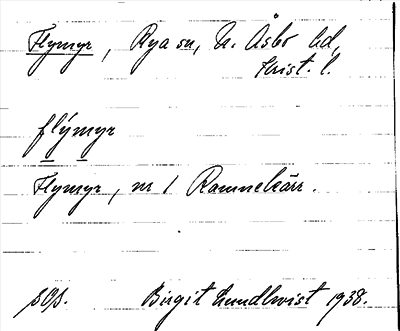 Flymyr, Rya sn, N. Åsbo hd,
Krist. l.
flýmyr
Flymyr, nr 1 Ramnekärr.
sOs. Birgit Lundkvist 1938.